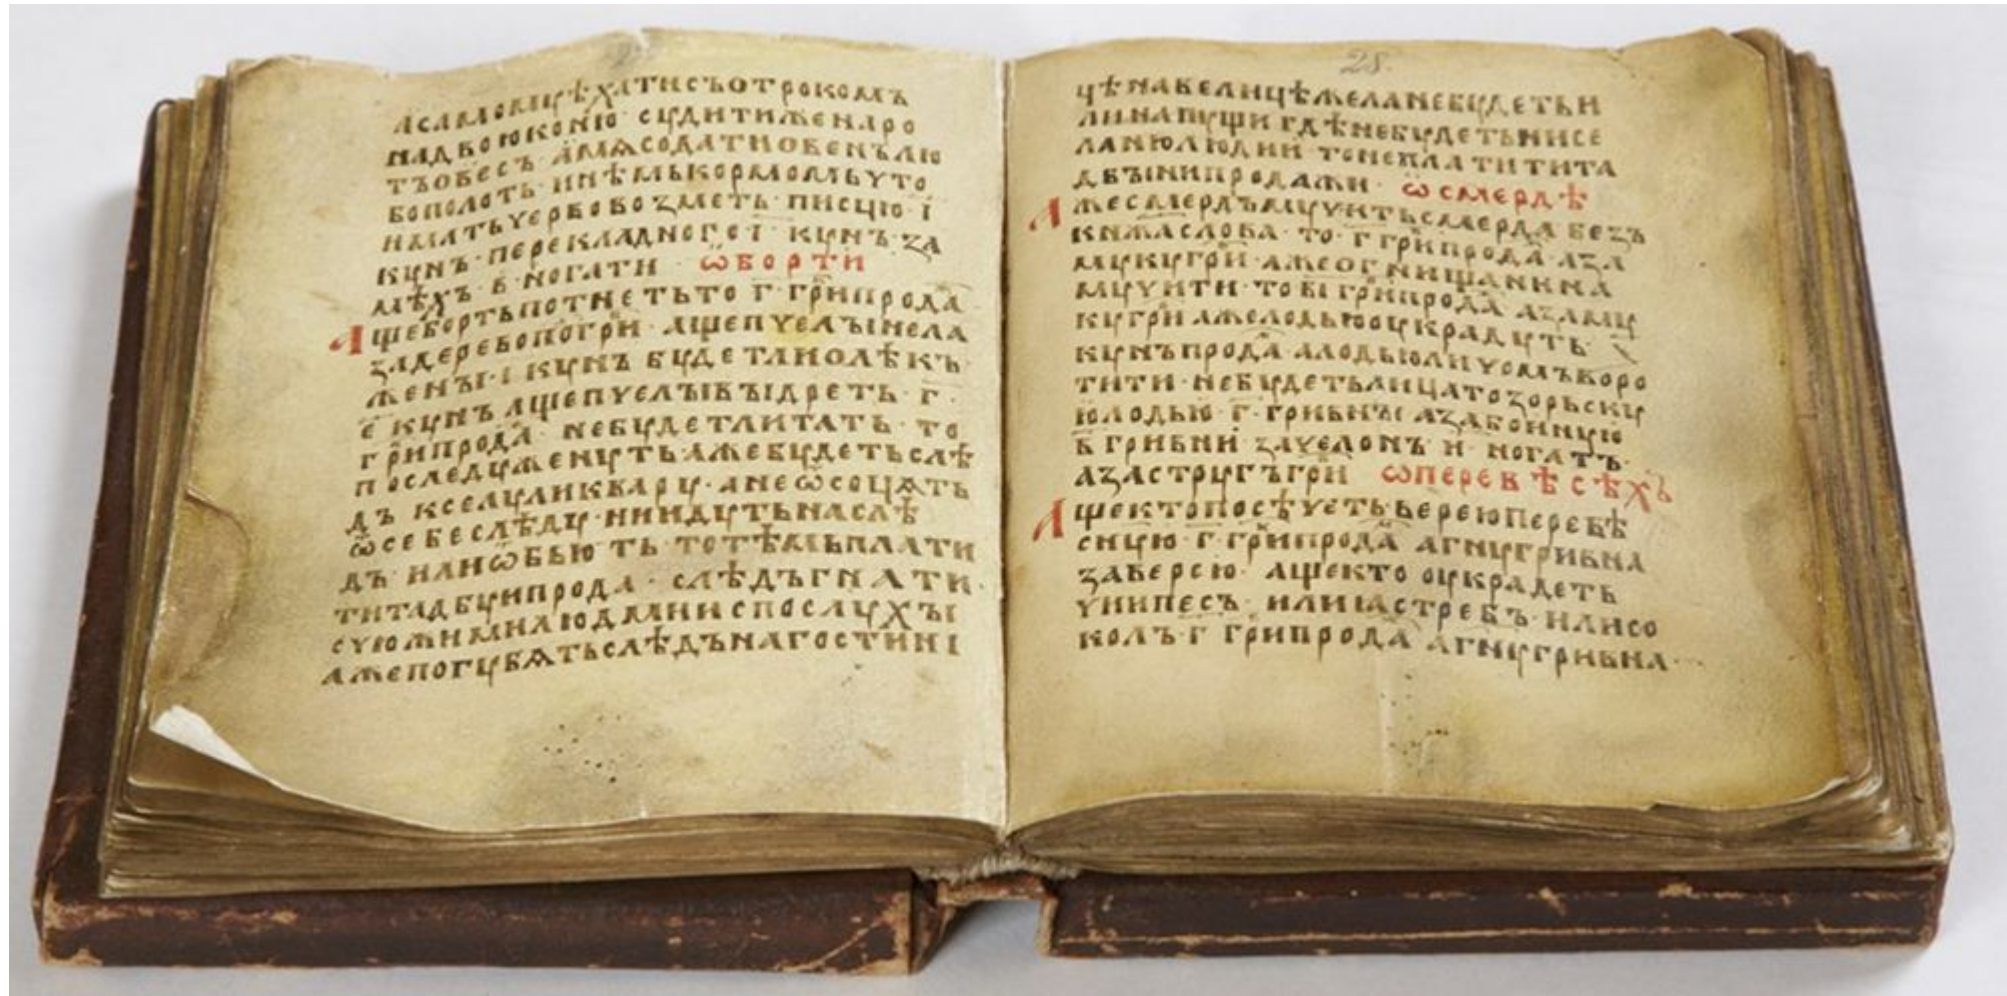 А САМОМУ ѢХАТИ СЪ ОТРОКОМЪ
НА ДВОЮ КОНЮ СУДИТИ ЖЕ НА РО
ТЪ ОВЕСЪ А МѦСО ДАТИ ОВЕНЪ ЛЮ
БО ПОЛОТЬ И НѢМЬ КОРМОМЬ ЧТО
ИМАТЬ ЧЕРЕВО ВОЗМЕТЬ ПИСЦЮ І
КУНЪ ПЕРЕКЛАДНОГО І КУНЪ ЗА
МѢХЪ В НОГАТИ Ѡ БОРТИ
АЩЕ БОРТЬ ПОТНЕТЬ ТО Г ГРИ ПРОДА
ЗА ДЕРЕВО ПО ГРИ АЩЕ ПЧЕЛЫ НЕ ЛА
ЖЕНЫ І КУНЪ БУДЕТ ЛИ ОЛѢКЪ
Е КУНЪ АЩЕ ПЧЕЛЫ ВЫДРЕТЬ Г
ГРИ ПРОДА НЕ БУДЕТ ЛИ ТАТЬ ТО
ПО СЛЕДУ ЖЕНУТЬ АЖЕ БУДЕТЬ СЛѢ
ДЪ К СЕЛУ ЛИ К ВАРУ А НЕ ѾСОЦѦТЬ
Ѿ СЕБЕ СЛѢДУ НИ ИДУТЬ НА СЛѢ
ДЪ ИЛИ ѾБЬЮТЬ ТО ТѢМЬ ПЛАТИ
ТИ ТАДБУ И ПРОДА СЛѢДЪ ГНАТИ
С ЧЮЖИМИ ЛЮДМИ И С ПОСЛУХЫ
АЖЕ ПОГУБѦТЬ СЛѢДЪ НА ГОСТИНІ
28
ЦѢ НА ВЕЛИЦѢ Ж ЕЛА НЕ БУДЕТЬ И
ЛИ НА ПУЩИ ГДѢ НЕ БУДЕТЬ НИ СЕ
ЛА НИ ЛЮДИИ ТО НЕ ПЛАТИТИ ТА
ДВЫ НИ ПРОДАЖИ Ѡ СМЕРДѢ
АЖЕ СМЕРДЪ МУЧИТЬ СМЕРДА БЕЗЪ
КНЖА СЛОВА ТО Г ГРИ ПРОДА А ЗА
МУКУ ГРИ АЖЕ ОГНИЩАНИНА
МУЧИТИ ТО ВІ ГРИ ПРОДА А ЗА МУ
КУ ГРИ АЖЕ ЛОДЬЮ ОУКРАДУТЬ
КУНЪ ПРОДА А ЛОДЬЮ ЛИЧОМЪ ВОРО
ТИТИ НЕ БУДЕТЬ ЛИЦА ТО ЗОРЬСКУ
Ю ЛОДЬЮ Г ГРИВНЫ А ЗА БОИНУЮ
В ГРИВНИ ЗА ЧЕЛОНЪ И НОГАТЪ
А ЗА СТРУГЪ ГРИ Ѡ ПЕРЕВѢСѢХЪ
АЩЕ КТО ПОСѢЧЕТЬ ВЕРЕЮ ПЕРЕВѢ
СНУЮ Г ГРИ ПРОДА А ГНУ ГРИВНА
ЗА ВЕРЕЮ АЩЕ КТО ОУКРАДЕТЬ
ЧИИ ПЕСЪ ИЛИ ꙖСТРЕБЪ ИЛИ СО
КОЛЪ Г ГРИ ПРОДА А ГНУ ГРИВНА